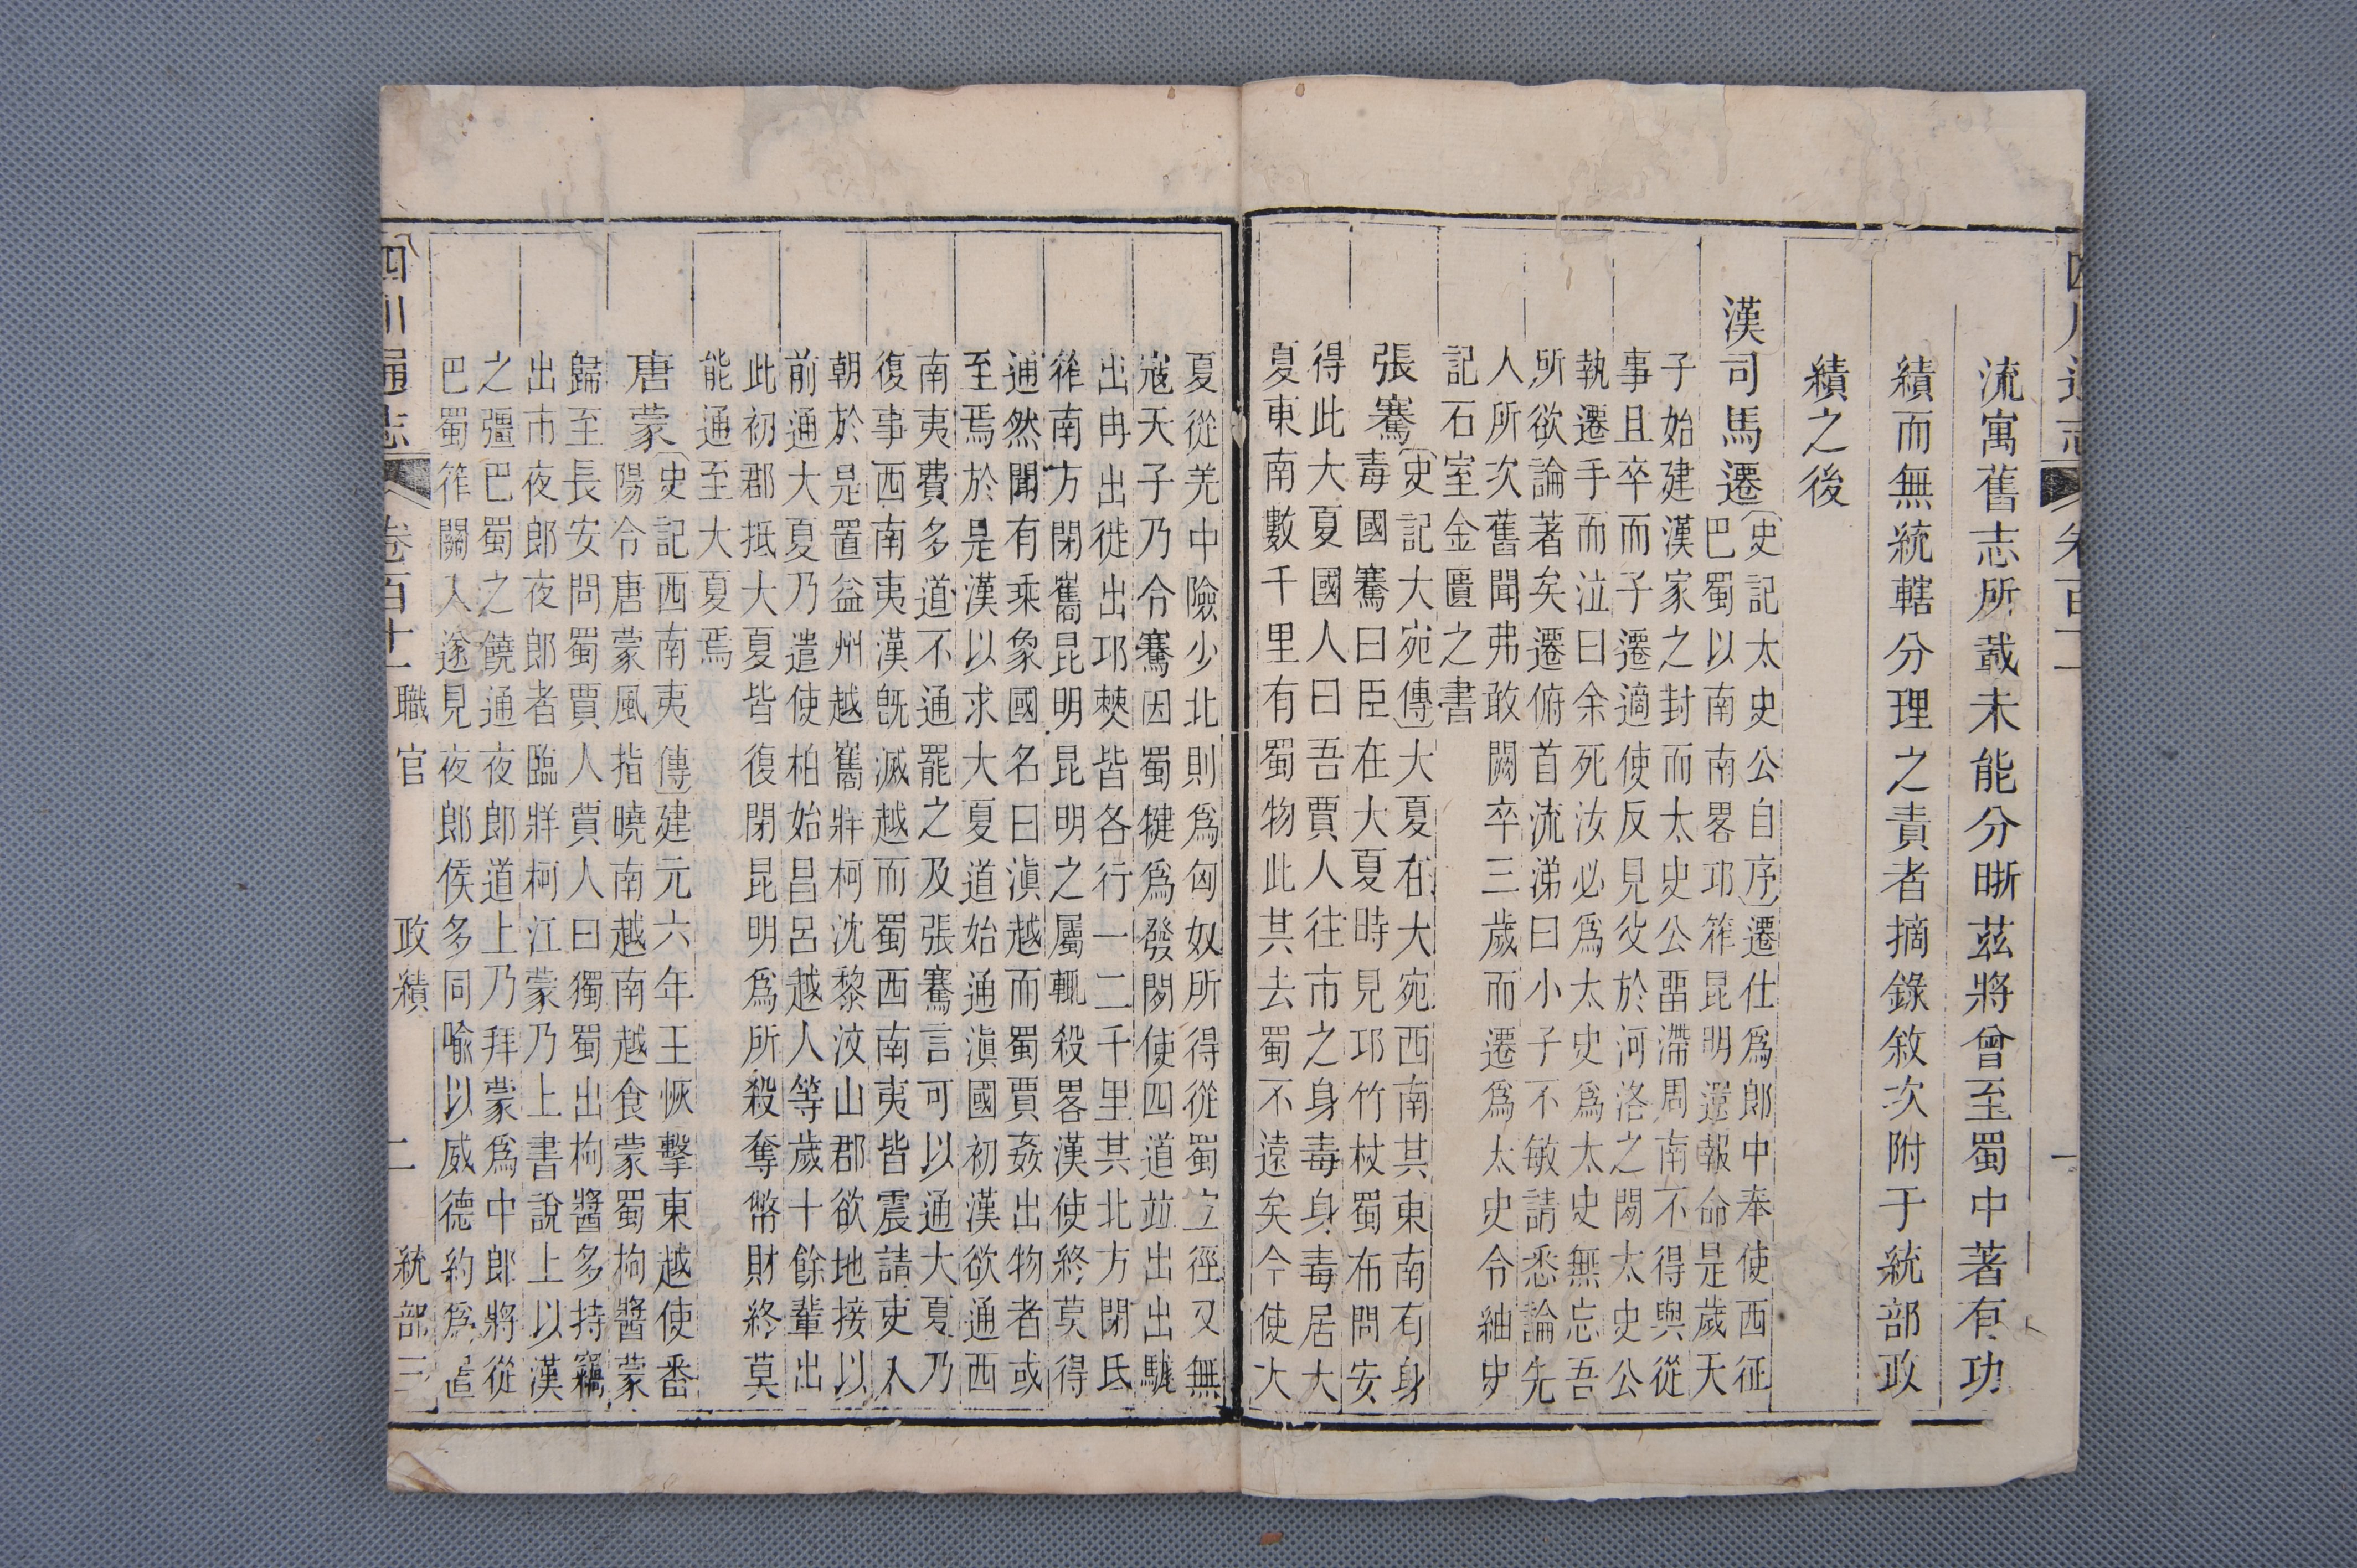 流寓舊志所載未能分晰茲將曾至蜀中著有功
績而無統轄分理之責者摘錄敘次附于統部政
績之後
漢司馬遷
史記太史公自序遷仕爲郎中奉使西征
巴蜀以南南畧邛筰昆明還報命是歲天
子始建漢家之封而太史公畱滯周南不得與從
事且卒而子遷適使反見父於河洛之閒太史公
執遷手而泣曰余死汝必爲太史爲太史無忘吾
所欲論著矣遷俯首流涕曰小子不敏請悉論先
人所次舊聞弗敢闕卒三歲而遷爲太史令紬史
記石室金匱之書
張騫
史記大宛傳大夏在大宛西南其東南有身
毒國騫曰臣在大夏時見邛竹杖蜀布問安
得此大夏國人曰吾賈人往市之身毒身毒居大
夏東南數千里有蜀物此其去蜀不遠矣今使大
夏從羌中險少北則爲匈奴所得從蜀立徑又無
寇天子乃令騫因蜀犍爲發閒使四道竝出出駹
出冉出徙出邛僰皆各行一二千里其北方閉氐
筰南方閉巂昆明昆明之屬輒殺畧漢使終莫得
通然聞有乘象國名曰滇越而蜀賈姦出物者或
至焉於是漢以求大夏道始通滇國初漢欲通西
南夷費多道不通罷之及張騫言可以通大夏乃
復事西南夷漢旣滅越而蜀西南夷皆震請吏入
朝於是置益州越巂牂柯沈黎汶山郡欲地接以
前通大夏乃遣使柏始昌呂越人等歲十餘輩出
此初郡抵大夏皆復閉昆明爲所殺奪幣財終莫
能通至大夏焉
唐蒙
史記西南夷傳建元六年王恢擊東越使番
陽令唐蒙風指曉南越南越食蒙蜀枸醬蒙
歸至長安問蜀賈人賈人曰獨蜀出枸醬多持竊
出市夜郎夜郎者臨牂柯江蒙乃上書說上以漢
之彊巴蜀之饒通夜郎道上乃拜蒙爲中郎將從
巴蜀筰關入遂見夜郎侯多同喻以威德約爲置
四川通志 卷百十 職官 政績 二 統部三